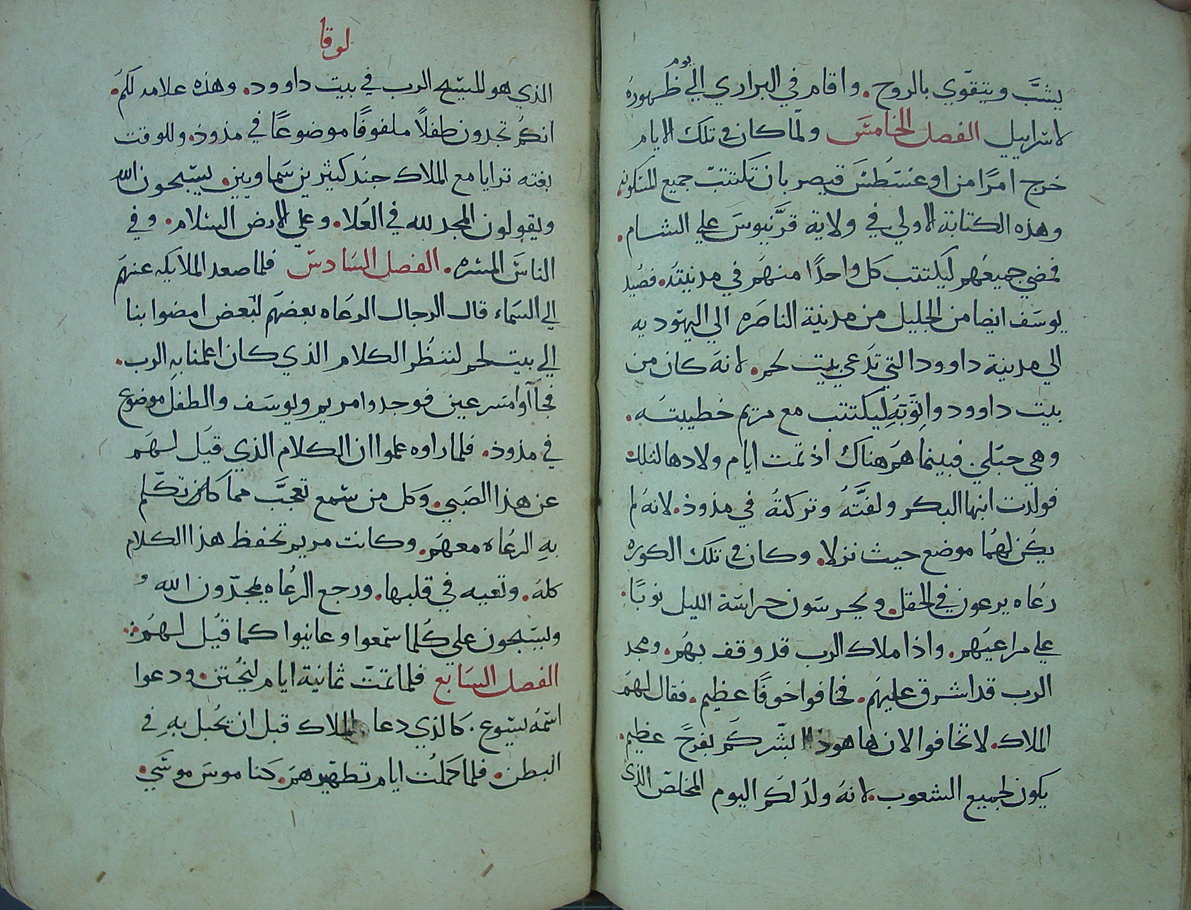 يشبّ ويتقوّى بالروح. واقام في البراري الي يوم ظهوره
لاسراييل الفصل الخامس ولما كان في تلك الايام
خرج امرًا من اوغسطس قيصر بان تكتتب جميع المسكونه
وهذه الكتابة الاولي في ولاية قرنيوس علي الشام.
فمضي جميعهم ليكتتب كل واحدًا منهم في مدينته. فصعد
يوسف ايضا من الجليل من مدينة الناصره الي اليهوديه
الي مدينة داوود التي تدعي بيت لحم. لانه كان من
بيت داوود وابوّته ليكتتب مع مريم خطيبته.
وهي حبلي فبينما هم هناك اذ تمت ايام ولادها لتلد
فولدت ابنها البكر ولفتّه وتركته في مذود. لانه لم
يكن لهما موضع حيث نزلا. وكان في تلك الكوره
رعاه يرعون في الحقل. ويحرسون حراسة الليل نوبًا.
علي مراعيهم. واذا ملاك الرب قد وقف بهم. ومجد
الرب قد اشرق عليهم. فخافوا خوفًا عظيم. فقال لهم
الملاك. لا تخافوا الان هاهوذا ابشركم بفرح عظيم.
يكون لجميع الشعوب. لانه ولد لكم اليوم المخلص الذي
لوقا
الذي هو المسيح الرب في بيت داوود. وهذه علامه لكم.
انكم تجدون طفلاً ملفوفًا موضوعًا في مذود. وللوقت
بغته ترايا مع الملاك جند كثيرين سماويين. يسبّحون الله
ويقولون المجد لله في العُلا. وعلي الارض السلام. وفي
الناس المسره. الفصل السادس فلما صعد الملايكه عنهم
الي السماء قال الرجال الرعاه بعضهم لبعض امضوا بنا
الي بيت لحم لننظر الكلام الذي كان اعلمنا به الرب.
فجآاوا مسرعين فوجدوا مريم ويوسف والطفل موضوع
في مذود. فلما راوه علموا ان الكلام الذي قيل لهم
عن هذا الصبي. وكل من سمع تعجّب مما كان تكلم
به الرعاه معهم. وكانت مريم تحفظ هذا الكلام
كله. وتعيه في قلبها. ورجع الرعاه يمجدون الله
ويسبّحون علي كلما سمعوا وعاينوا كما قيل لهم
الفصل السابع فلما تمت ثمانية ايام ليختن. ودعوا
اسمه يسوع. كالذي دعا الملاك قبل ان تحبل به في
البطن. فلما كملت ايام تطهيرهم. كناموس موسي